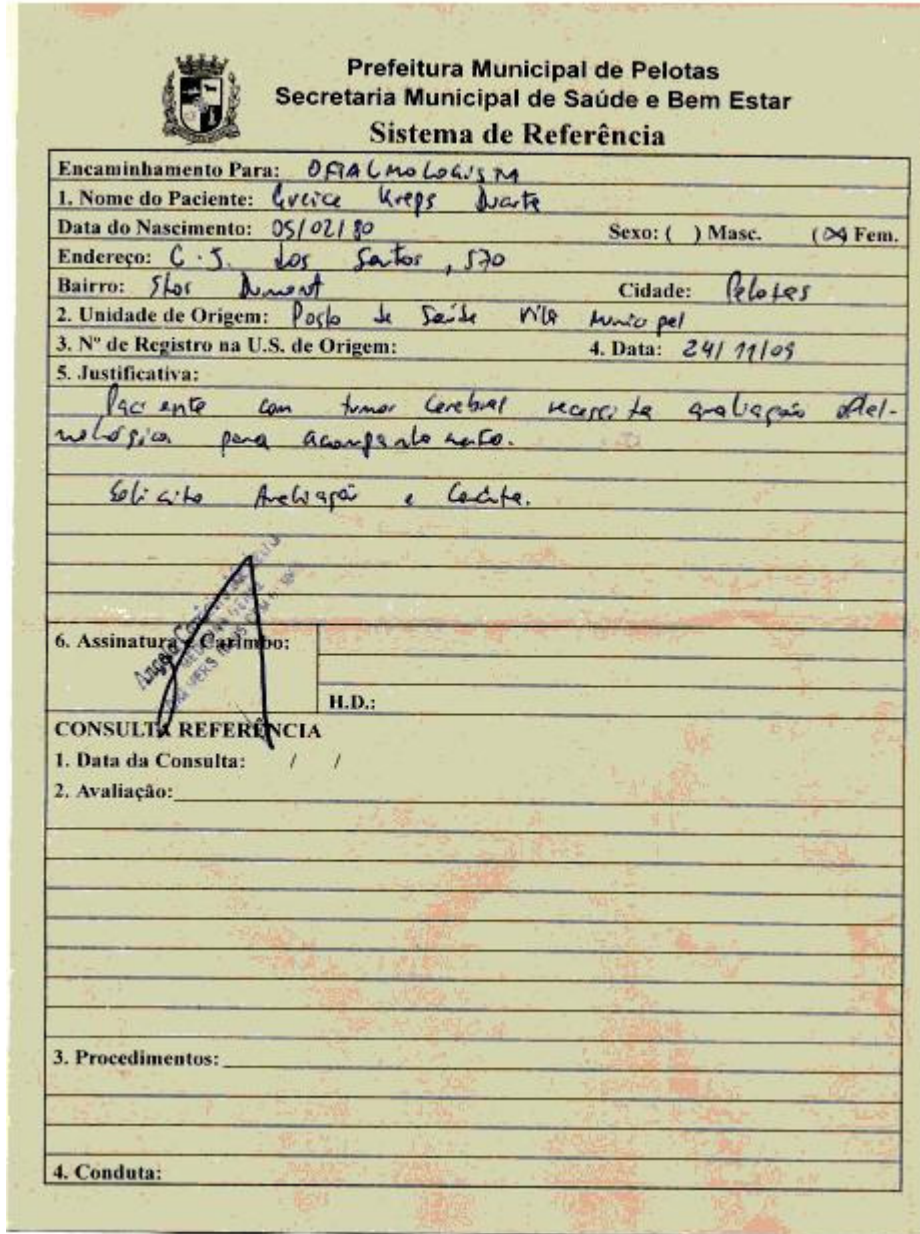 Prefeitura Municipal de Pelotas
Secretaria Municipal de Saúde e Bem Estar
Sistema de Referência
Encaminhamento Para: OFTALMOLOGISTA
1. Nome do Paciente: Greice Kreps Duarte
Data do Nascimento: 05/02/80 Sexo: ( ) Masc. (X) Fem.
Endereço: C. J. dos Santos, 570
Bairro: Stos Dumont Cidade: Pelotas
2. Unidade de Origem: Posto de Saúde Vila Municipal
3. Nº de Registro na U.S. de Origem: 4. Data: 24/11/09
5. Justificativa:
Paciente com tumor cerebral necessita avaliação oftal-
mológica para acompanhamento.
Solicito Avaliação e Conduta.
6. Assinatura e Carimbo:
H.D.:
CONSULTA REFERÊNCIA
1. Data da Consulta: / /
2. Avaliação:
3. Procedimentos:
4. Conduta: